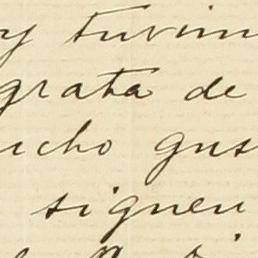 y tuvim
grata de
ucho gus
siguen